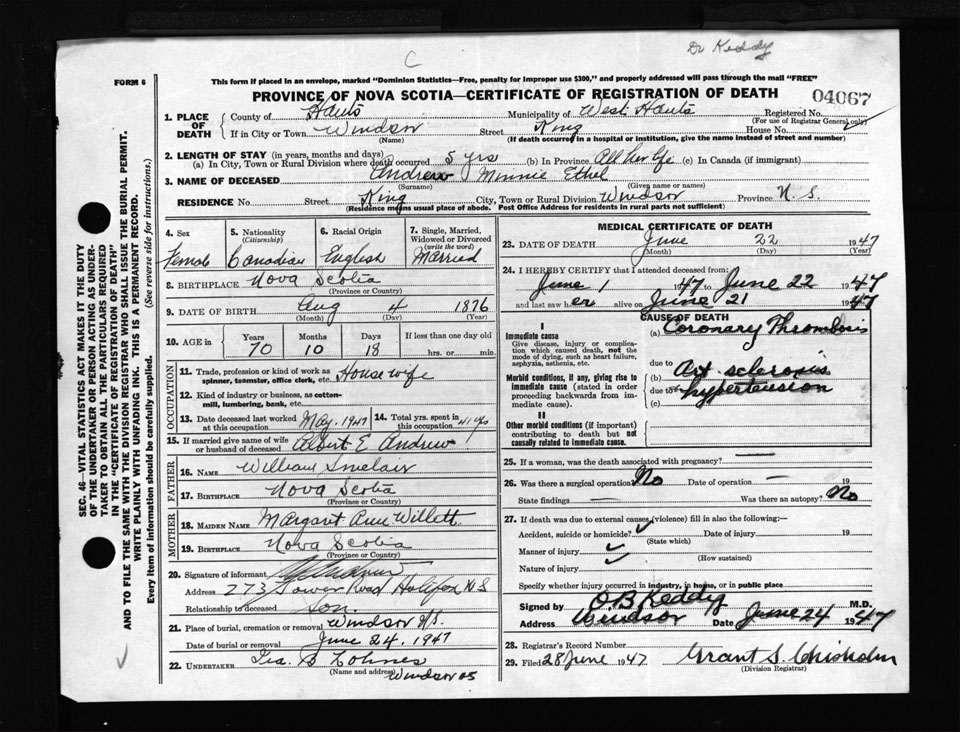 Dr Keddy
C
FORM 6
This form if placed in an envelope, marked "Dominion Statistics—Free, penalty for improper use $300," and properly addressed will pass through the mail "FREE"
PROVINCE OF NOVA SCOTIA—CERTIFICATE OF REGISTRATION OF DEATH
04067
1. PLACE OF DEATH
County of Hants Municipality of West Hants Registered No.
(For use of Registrar General only)
If in City or Town Windsor Street King House No.
(Name) (If death occurred in a hospital or institution, give the name instead of street and number)
2. LENGTH OF STAY (in years, months and days)
(a) In City, Town or Rural Division where death occurred 5 yrs (b) In Province All her life (c) In Canada (if immigrant)
3. NAME OF DECEASED Andrew Minnie Ethel
(Surname) (Given name or names)
RESIDENCE No. Street King City, Town or Rural Division Windsor Province N.S.
(Residence means usual place of abode. Post Office Address for residents in rural parts not sufficient)
4. Sex
Female
5. Nationality
(Citizenship)
Canadian
6. Racial Origin
English
7. Single, Married, Widowed or Divorced
(write the word)
Married
8. BIRTHPLACE Nova Scotia
(Province or Country)
9. DATE OF BIRTH Aug 4 1876
(Month) (Day) (Year)
10. AGE in Years Months Days If less than one day old
70 10 18 hrs. or min.
OCCUPATION
11. Trade, profession or kind of work as spinner, teamster, office clerk, etc. Housewife
12. Kind of industry or business, as cotton-mill, lumbering, bank, etc.
13. Date deceased last worked at this occupation May. 1947
14. Total yrs. spent in this occupation 41 yrs
15. If married give name of wife or husband of deceased Albert E Andrew
FATHER
16. NAME William Sinclair
17. BIRTHPLACE Nova Scotia
(Province or Country)
MOTHER
18. MAIDEN NAME Margaret Ann Willett
19. BIRTHPLACE Nova Scotia
(Province or Country)
20. Signature of informant
Address 273 Tower Road Halifax N S
Relationship to deceased Son.
21. Place of burial, cremation or removal Windsor N.S.
Date of burial or removal June 24. 1947
22. UNDERTAKER
(Name and address) Windsor
MEDICAL CERTIFICATE OF DEATH
23. DATE OF DEATH June 22 1947
(Month) (Day) (Year)
24. I HEREBY CERTIFY that I attended deceased from:
June 1 1947 to June 22 1947
and last saw her alive on June 21 1947
CAUSE OF DEATH
I
Immediate cause
Give disease, injury or complication which caused death, not the mode of dying, such as heart failure, asphyxia, asthenia, etc.
(a) Coronary Thrombosis
due to
Morbid conditions, if any, giving rise to immediate cause (stated in order proceeding backwards from immediate cause).
(b) Art. sclerosis
due to
(c) hypertension
II
Other morbid conditions (if important) contributing to death but not causally related to immediate cause.
25. If a woman, was the death associated with pregnancy? —
26. Was there a surgical operation? No Date of operation — 19
State findings — Was there an autopsy? No
27. If death was due to external causes (violence) fill in also the following:—
Accident, suicide or homicide? Date of injury 19
(State which)
Manner of injury
(How sustained)
Nature of injury
Specify whether injury occurred in industry, in home, or in public place
Signed by O.B. Keddy M.D.
Address Windsor Date June 24 1947
28. Registrar's Record Number
29. Filed 28 June 1947 Grant S. Chisholm
(Division Registrar)
SEC. 46—VITAL STATISTICS ACT MAKES IT THE DUTY
OF THE UNDERTAKER OR PERSON ACTING AS UNDER-
TAKER TO OBTAIN ALL THE PARTICULARS REQUIRED
IN THE "CERTIFICATE OF REGISTRATION OF DEATH"
AND TO FILE THE SAME WITH THE DIVISION REGISTRAR WHO SHALL ISSUE THE BURIAL PERMIT.
WRITE PLAINLY WITH UNFADING INK. THIS IS A PERMANENT RECORD.
Every item of information should be carefully supplied. (See reverse side for instructions.)